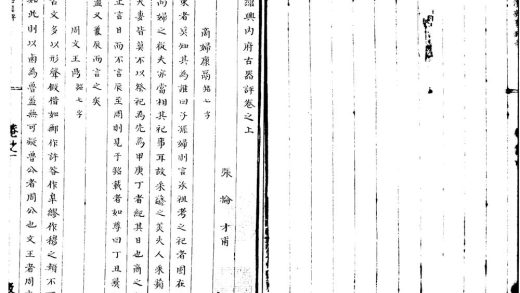 紹興內府古器評卷之上
張掄才甫
商婦康鬲銘七字
來者莫知其為誰曰子孫婦則言承祖考之祀者固在
商婦之從夫亦當相其祀事耳故采蘩之美夫人采蘋
夫妻皆莫不以祭祀為先為甲庚丁者紀其日也商之
止言日而不言辰至周則見于銘載者如尊曰丁丑
蓋又兼辰而言之矣
周文王鼎銘七字
古文多以形聲假借如鄦作許咎作皋繆作穆之類不
此則以鹵為魯蓋無可疑魯公者周公也文王者周